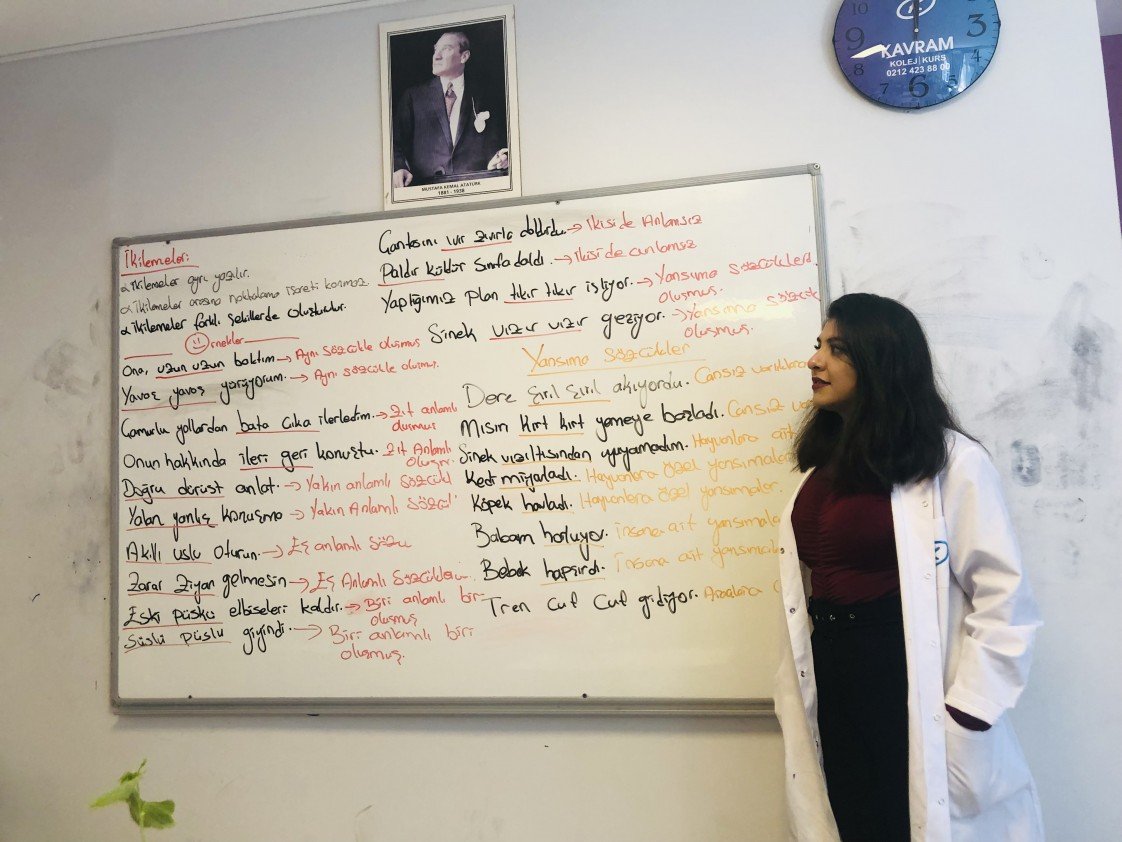 MUSTAFA KEMAL ATATÜRK
1881 - 1938
10
9
8
6
3
4
KAVRAM
KOLEJ KURS
0212 423 88 00
İkilemeler:
İkilemeler ayrı yazılır.
İkilemeler arasına noktalama işareti konmaz.
İkilemeler farklı şekillerde oluşturulur.
rnekler
Ona, uzun uzun baktım → Aynı sözcükle oluşmuş
Yavaş yavaş yürüyorum. → Aynı sözcükle oluşmuş.
Çamurlu yollardan bata çıka ilerledim. → Zıt anlamlı
oluşmuş
Onun hakkında ileri geri konuştu. Zıt Anlamlı
oluşmuş
Doğru dürüst anlat. → Yakın anlamlı sözcük
Yalan yanlış konuşma → Yakın Anlamlı sözcü
Akıllı uslu oturun. → Eş anlamlı sözcü
Zarar ziyan gelmesin → Eş Anlamlı sözcükler
Eski püskü elbiseleri kaldır. → Biri anlamlı bir
oluşmuş
Süslü püslü giyindi. → Biri anlamlı biri
oluşmuş.
Çantasını ıvır zıvırla doldurdu → İkisi de Anlamsız
Paldır küldür sınıfa daldı. → İkisi de anlamsız
Yaptığımız plan tıkır tıkır işliyor. → Yansıma sözcüklerd
oluşmuş.
Sinek vızır vızır geziyor. → Yansıma sözcük
oluşmuş.
Yansıma Sözcükler
Dere şırıl şırıl akıyordu. Cansız varlıklara
Mısırı kırt kırt yemeye başladı. Cansız va
Sinek vızıltısından uyuyamadım. Hayvanlara ait
Kedi mıyavladı. Hayvanlara özel yansımalar
Köpek havladı. Hayvanlara özel yansımalar.
Babam horluyor. İnsana ait yansımala
Bebek hapşırdı. İnsana ait yansımala
Tren çuf çuf gidiyor. Araçlara